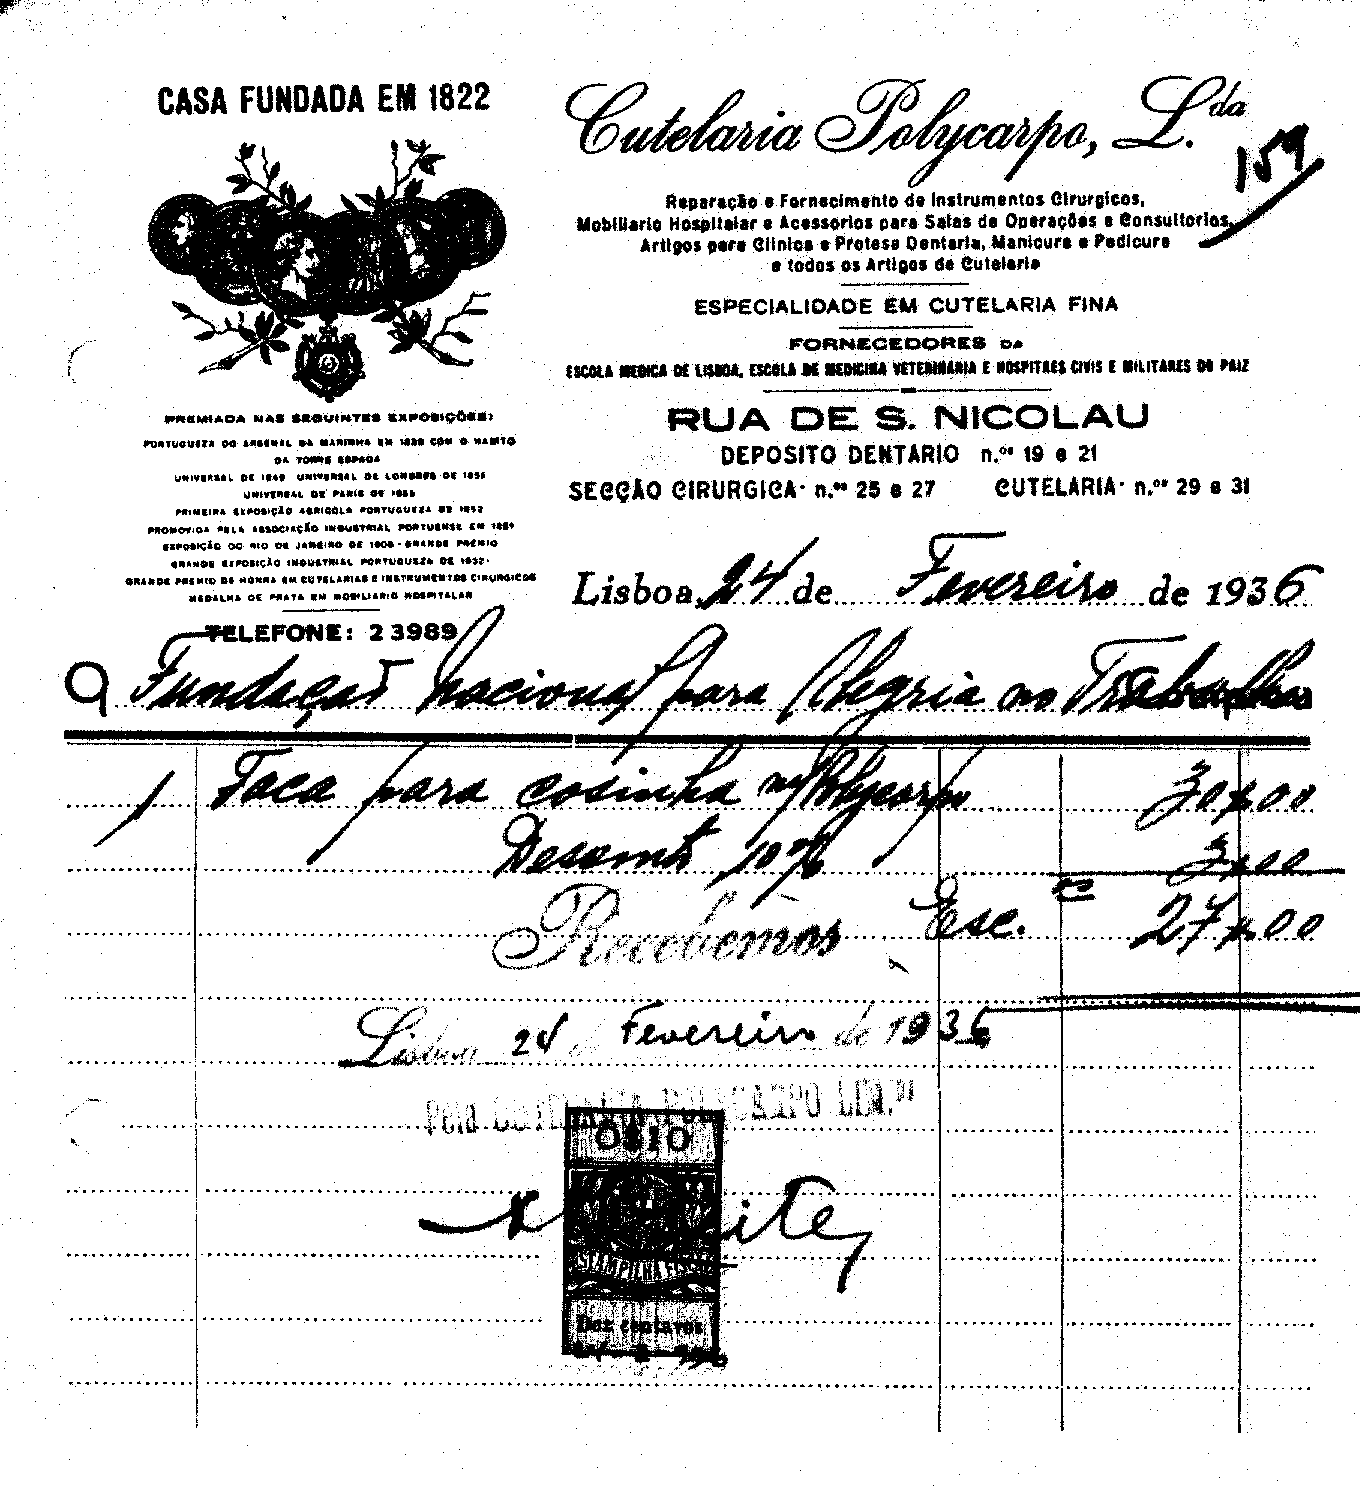 CASA FUNDADA EM 1822
Cutelaria Polycarpo, L.da
159
Reparação e Fornecimento de Instrumentos Cirurgicos,
Mobiliario Hospitalar e Acessorios para Salas de Operações e Consultorios,
Artigos para Clinica e Protese Dentaria, Manicure e Pedicure
e todos os Artigos de Cutelaria
ESPECIALIDADE EM CUTELARIA FINA
FORNECEDORES DA
ESCOLA MEDICA DE LISBOA, ESCOLA DE MEDICINA VETERINARIA E HOSPITAES CIVIS E MILITARES DO PAIZ
RUA DE S. NICOLAU
DEPOSITO DENTARIO n.os 19 e 21
SECÇÃO CIRURGICA· n.os 25 e 27 CUTELARIA· n.os 29 e 31
PREMIADA NAS SEGUINTES EXPOSIÇÕES:
PORTUGUEZA DO ARSENAL DA MARINHA EM COM O HABITO
DA TORRE ESPADA
UNIVERSAL DE 1849 UNIVERSAL DE LONDRES DE
UNIVERSAL DE PARIS DE 1855
PRIMEIRA EXPOSIÇÃO AGRICOLA PORTUGUEZA DE 1852
PROMOVIDA PELA ASSOCIAÇÃO INDUSTRIAL PORTUENSE EM
EXPOSIÇÃO DO RIO DE JANEIRO DE 1908 - GRANDE PREMIO
GRANDE EXPOSIÇÃO INDUSTRIAL PORTUGUEZA DE 1932·
GRANDE PREMIO DE HONRA EM CUTELARIAS E INSTRUMENTOS CIRURGICOS
MEDALHA DE PRATA EM MOBILIARIO HOSPITALAR
TELEFONE: 2 3989
Lisboa, 24 de Fevereiro de 1936
A Fundação Nacional para Alegria no Trabalho
1 Faca para cosinha m/ Polycarpo 30$00
Desconto 10% 3$00
Recebemos Esc. 27$00
Lisboa 24 de Fevereiro de 1936
Pela CUTELARIA POLYCARPO LIM.DA
$10
ESTAMPILHA FISCAL
Dez centavos